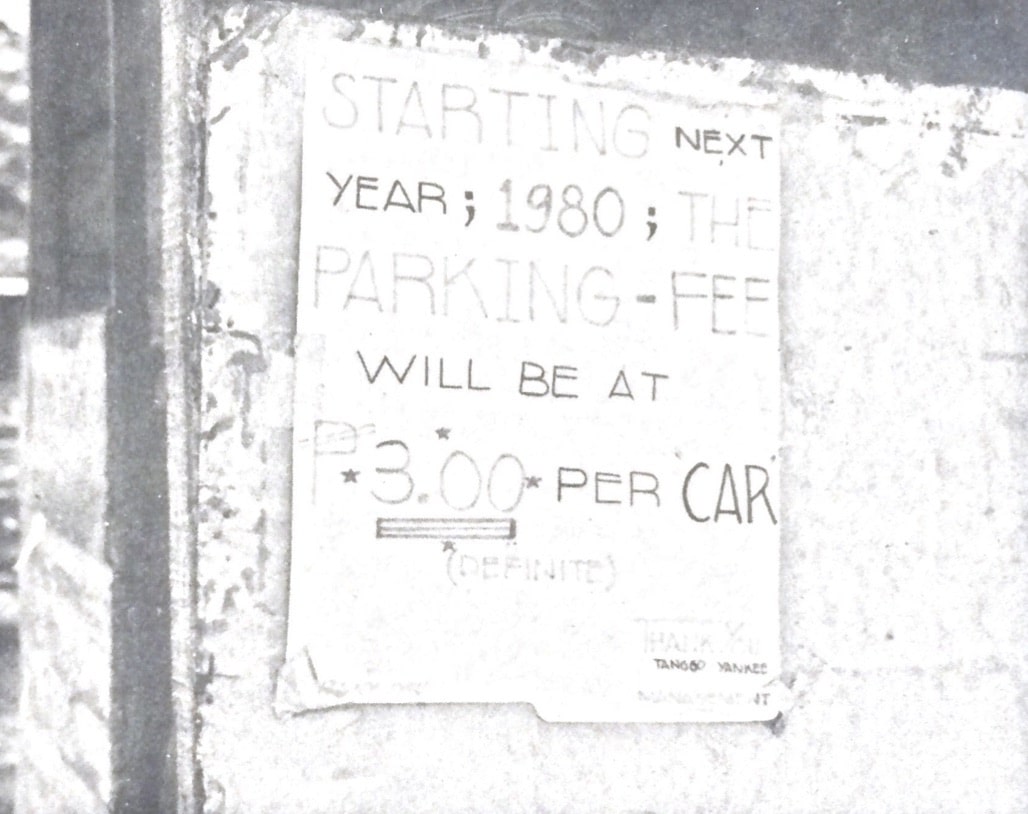 STARTING NEXT
YEAR; 1980; THE
PARKING-FEE
WILL BE AT
₱ 3.00 PER CAR
(DEFINITE)
THANK YOU
TANGGO YANKEE
MANAGEMENT